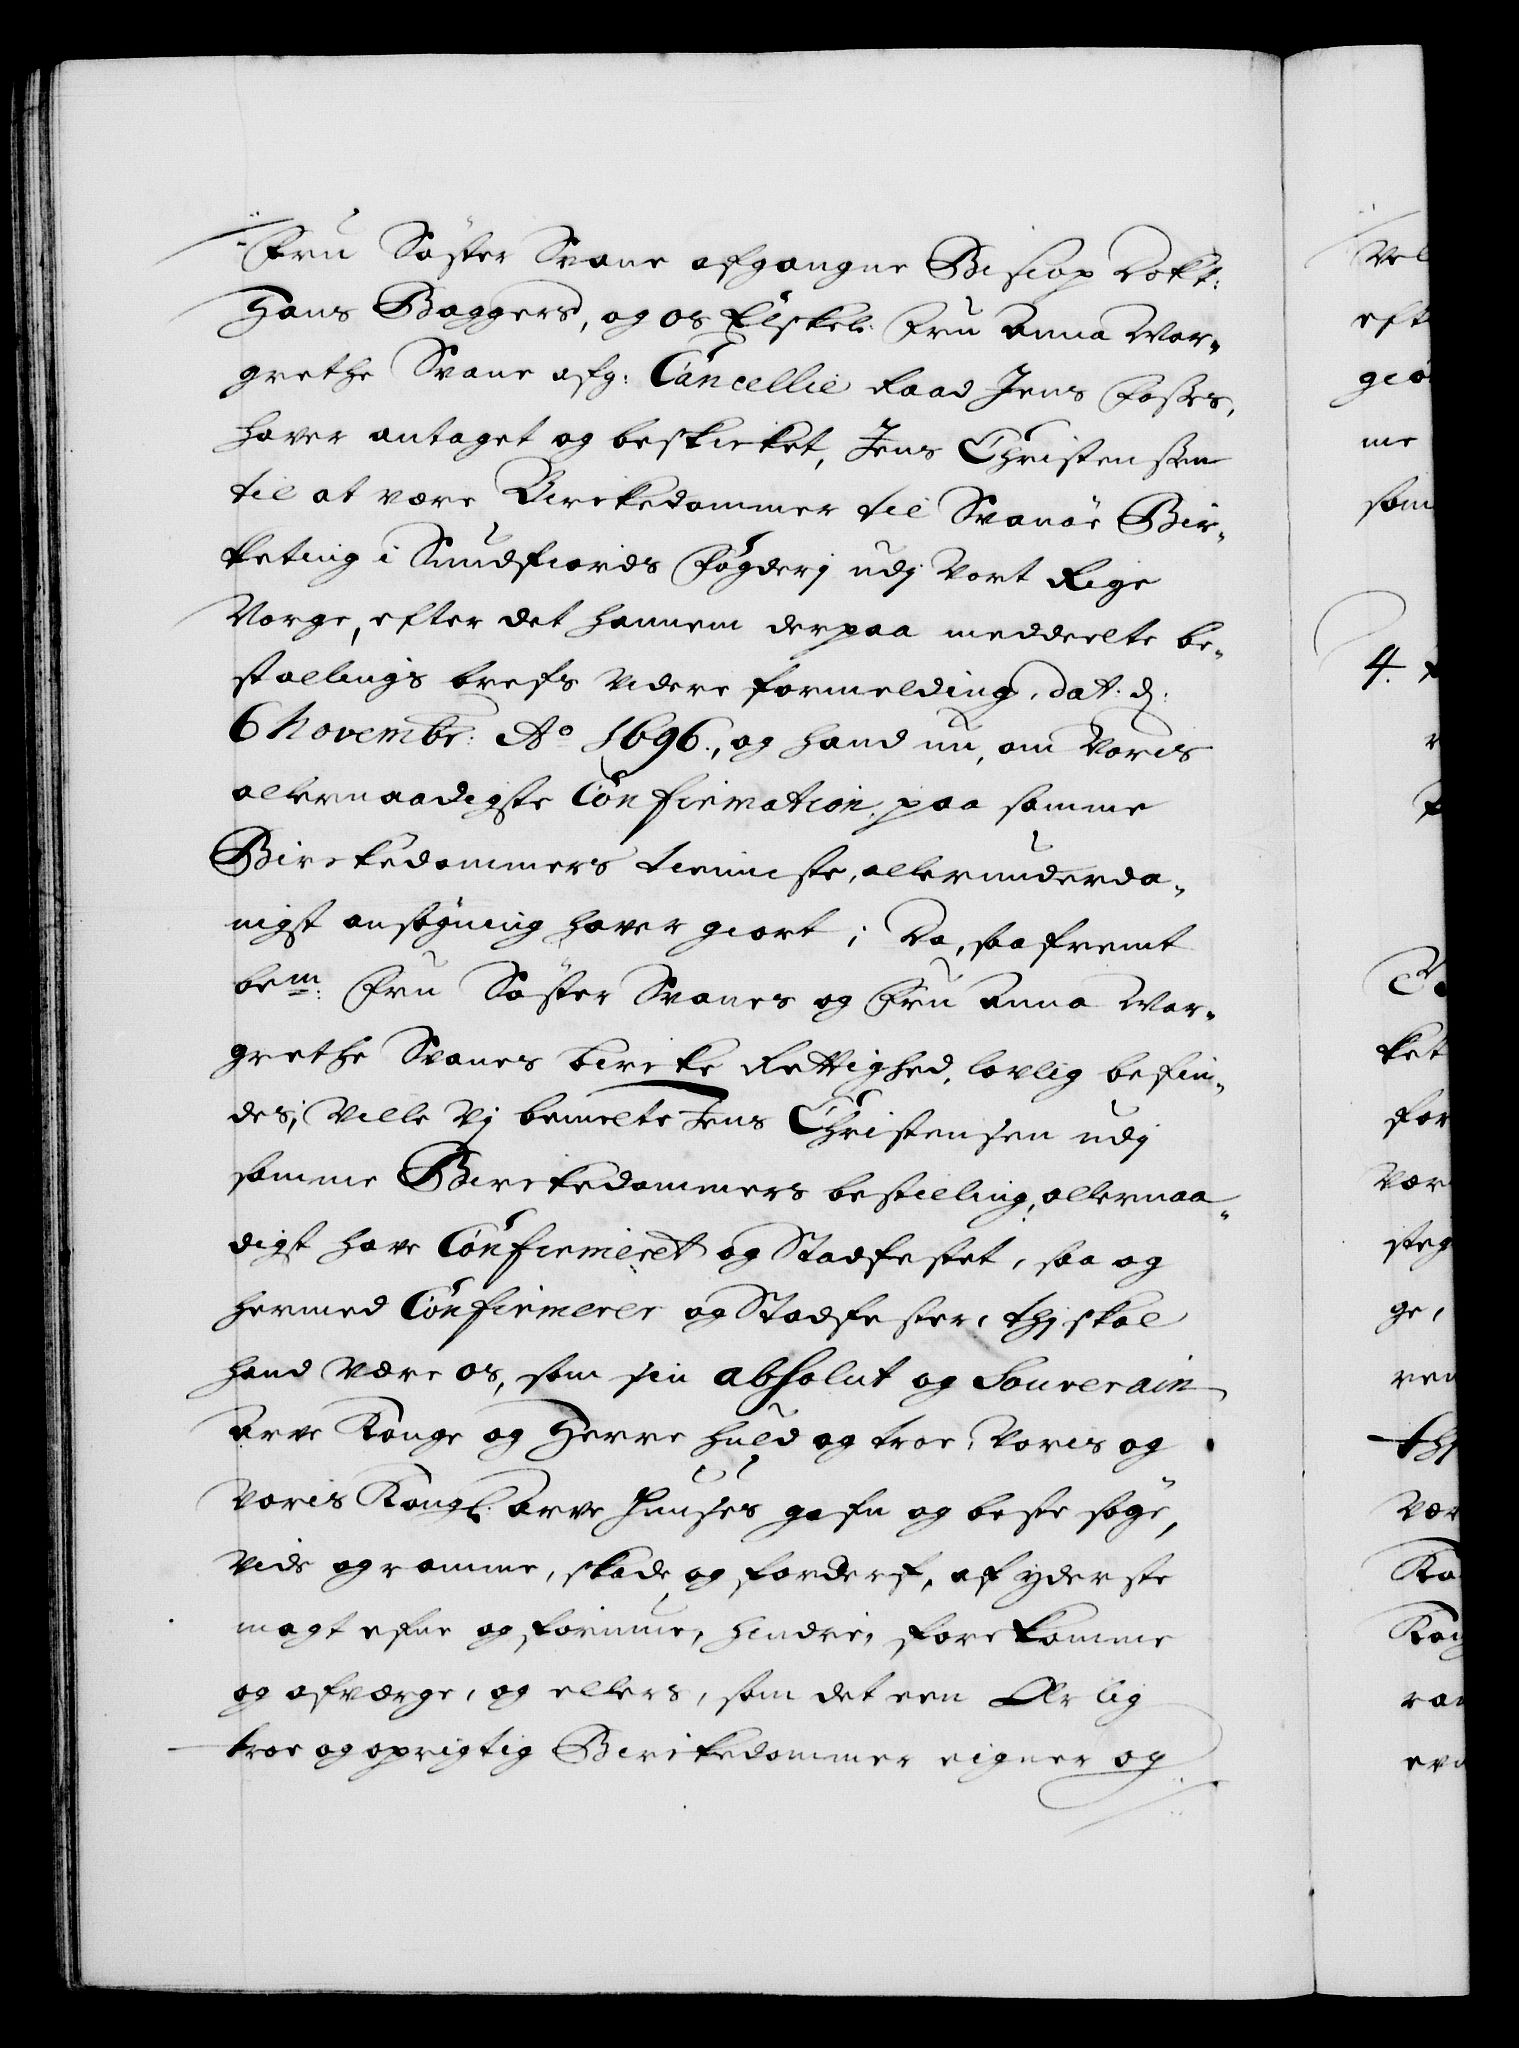 Fru Søster Svane afgangne Biscop Dokt:
Hans Baggers, og os Elskel: Fru Anna Mar-
grethe Svane afg: Cancellie Raad Jens Fosses,
haver antaget og beskicket, Jens Christenssen
til at være Birckedommer til Svanøe Bir-
keting i Sundfiords Fogderj udj Vort Rige
Norge, efter det hannem derpaa meddeelte be-
stallings brefs videre formelding, dat. d:
6 Novembr: Ao 1696., og hand nu, om Voris
allernaadigste Confirmation, paa samme
Birckedommers tienniste, allerunderda-
nigst ansøgning haver giort; Da, saafremt
bem: Fru Søster Svanes og Fru Anna Mar-
grethe Svanes bircke Rettighed, lovlig befin-
des; Ville Vj bemelte Jens Christensen udj
samme Birckedommers bestilling, allernaa-
digst have Confirmeret og Stadfestet, saa og
hermed Confirmerer og Stadfester, thj skal
hand være os, som sin absolut og Souverain
Arve Konge og Herre huld og troe, Voris og
Voris Kongl: Arve Huuses gafn og beste søge,
vide og ramme, skade og forderf, af yderste
magt efne og formue, hindre, forekomme
og afværge, og ellers, som det een Ærlig
troe og oprigtig Birckedommer eigner og
Vel
eft
giø
me
som
4.
ket
for
vær
steg
ge,
ren
thj
vær
Ko
Kon
ram
evn